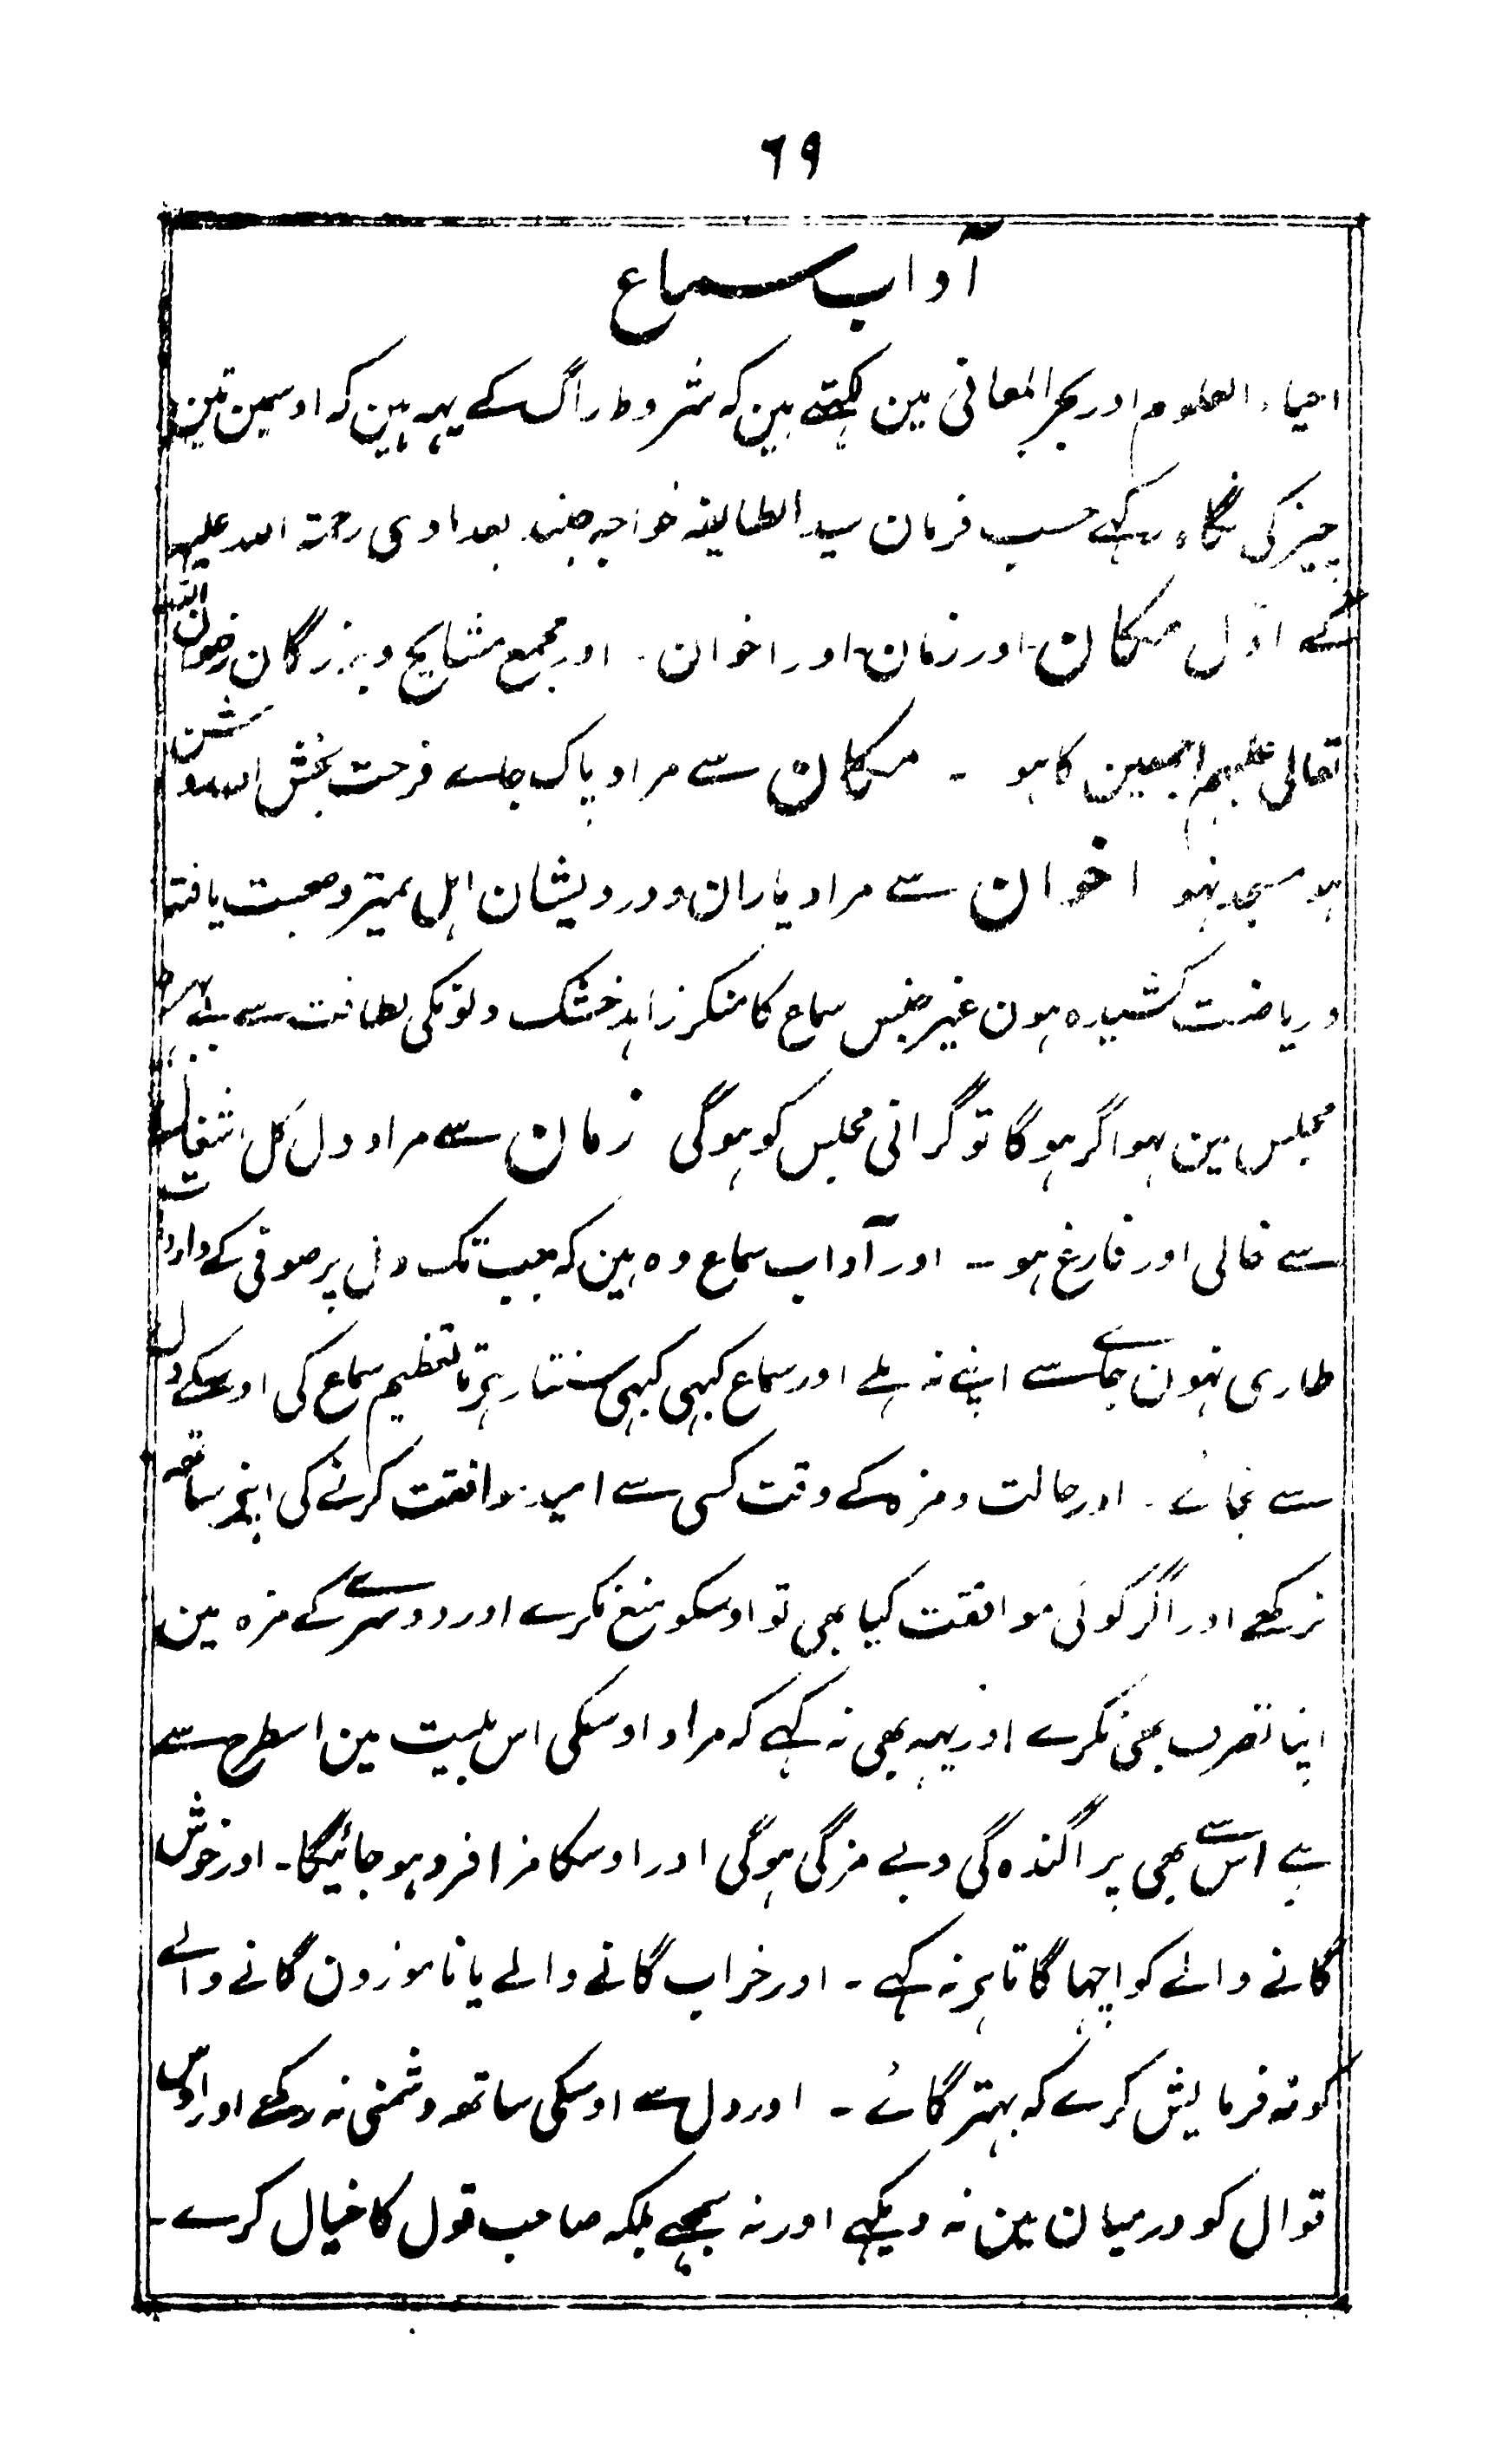 ۶۹
آداب سماع
احیاء العلوم اور بحر المعانی مین کہتے ہین کہ شروط راگ کے یہہ ہین کہ اوسمین تین
چیز کی نگاہ رکہے حسب فرمان سید الطایفہ خواجہ جنید بغدادی رحمتہ اللہ علیہ
کے اوّل مکان اور زمان اور اخوان۔ اور مجمع مشایخ و بزرگان رضوان اللہ
تعالی علیہم اجمعین کا ہو ۔ مکان سے مراد پاک جاے فرحت بخش روشن
ہو مسجد نہو اخوان سے مراد یاران و درویشان اہل تمیز و صحبت یافتہ
و ریاضت کشیدہ ہون غیر جنس سماع کا منکر زاہد خشک دلونکی لطافت سے بے بہرہ
مجلس مین نہو اگر ہوگا تو گرانی مجلس کو ہوگی زمان سے مراد دل کل اشغال
سے خالی اور فارغ ہو ۔ اور آداب سماع وہ ہین کہ جب تک دل پر صوفی کے واردات
طاری نہون جگہ سے اپنے نہ ہلے اور سماع کبہی کبہی سنتا رہے تا تعظیم سماع کی اوسکے دل
سے نجائے۔ اور حالت و مزہ کے وقت کسی سے امید موافقت کرنے کی اپنے ساتھہ
نرکھے اور اگر کوئی موافقت کیا بھی تو اوسکو منع نکرے اور دوسرے کے مزہ مین
اپنا تصرف بھی نکرے اور یہہ بھی نہ کہے کہ مراد اوسکی اس بیت مین اسطرح سے
ہے اس سے بھی پراگندہ گی و بے مزگی ہوگی اور اوسکا مزا فرد ہو جائیگا۔ اور خوش
گانے والے کو اچہا گاتا ہے نہ کہے ۔ اور خراب گانے والے یا ناموزون گانے والے
کو نہ فرمایش کرے کہ بہتر گائے ۔ اور دل سے اوسکی ساتھہ دشمنی نہ رکھے اور اوس
قوال کو درمیان مین نہ دیکہے اور نہ سمجہے بلکہ صاحب قول کا خیال کرے۔